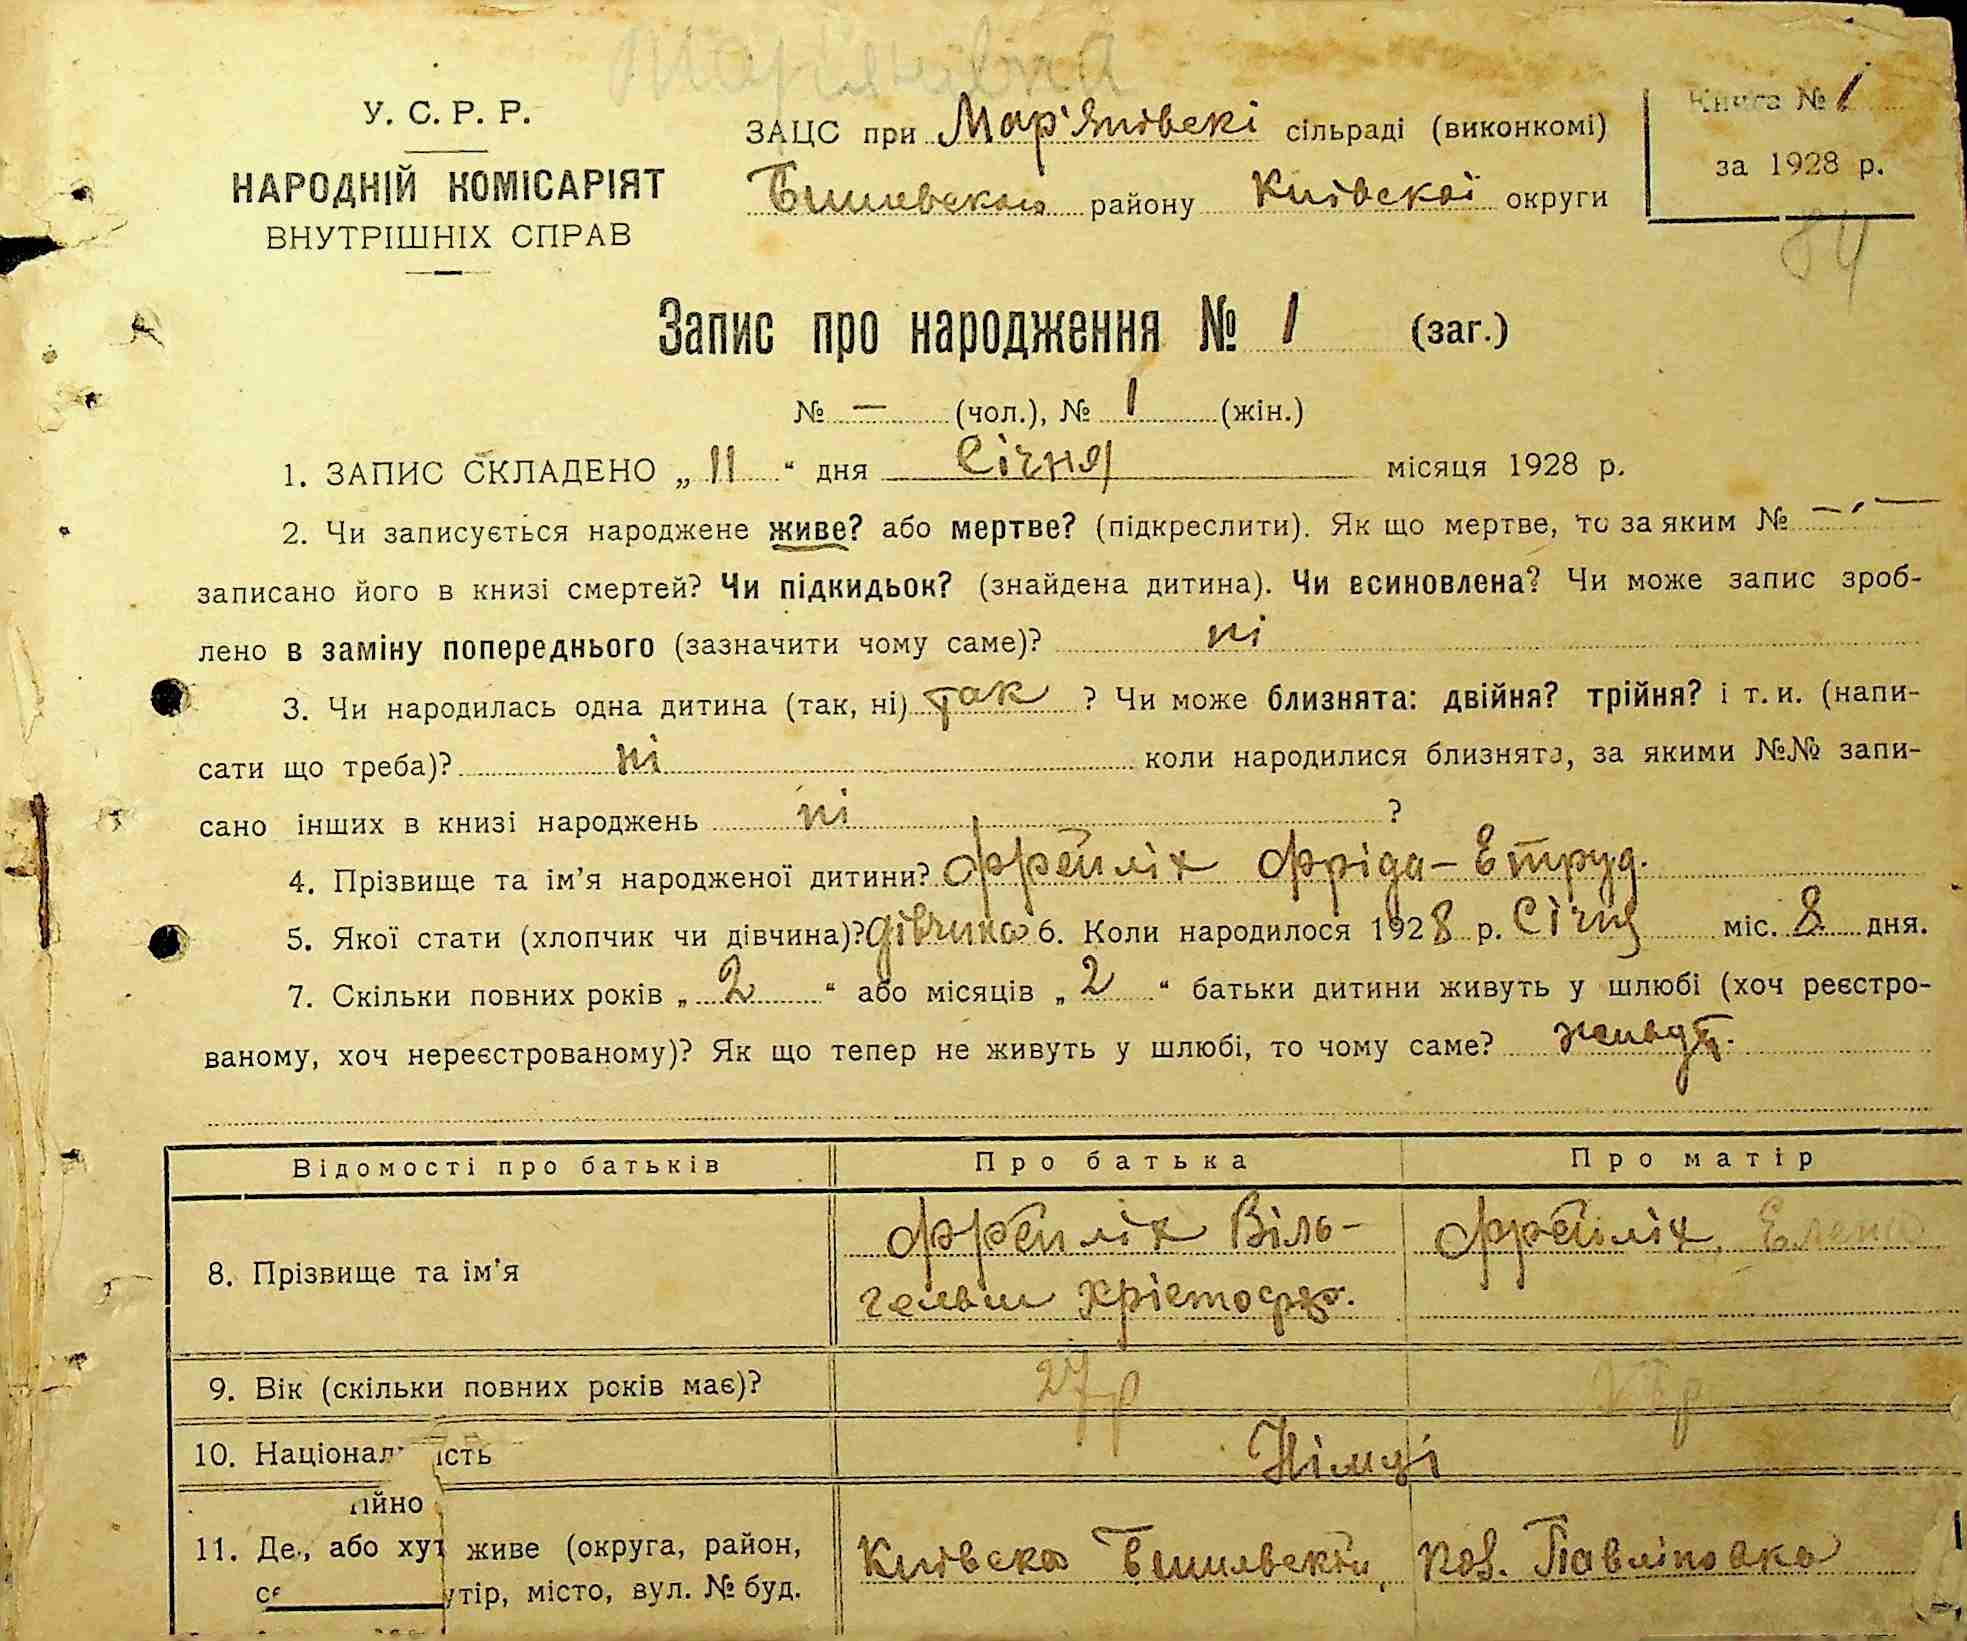 Мар'янівка
У. С. Р. Р.
НАРОДНІЙ КОМІСАРІЯТ
ВНУТРІШНІХ СПРАВ
ЗАЦС при Мар'янівскі сільраді (виконкомі)
Бишевского району Київскої округи
Книга № 1
за 1928 р.
84
Запис про народження № 1 (заг.)
№ — (чол.), № 1 (жін.)
1. ЗАПИС СКЛАДЕНО „ 11 “ дня Січня місяця 1928 р.
2. Чи записується народжене живе? або мертве? (підкреслити). Як що мертве, то за яким № —
записано його в книзі смертей? Чи підкидьок? (знайдена дитина). Чи всиновлена? Чи може запис зроб-
лено в заміну попереднього (зазначити чому саме)? ні
3. Чи народилась одна дитина (так, ні) так ? Чи може близнята: двійня? трійня? і т. и. (напи-
сати що треба)? ні коли народилися близнята, за якими №№ запи-
сано інших в книзі народжень ні ?
4. Прізвище та ім'я народженої дитини? Фрейліх Фріда-Етруд.
5. Якої стати (хлопчик чи дівчина)? дівчина 6. Коли народилося 1928 р. Січня міс. 8 дня.
7. Скільки повних років „ 2 “ або місяців „ 2 “ батьки дитини живуть у шлюбі (хоч реєстро-
ваному, хоч нереєстрованому)? Як що тепер не живуть у шлюбі, то чому саме? живуть.
Відомості про батьків Про батька Про матір
8. Прізвище та ім'я Фрейліх Віль- Фрейліх Елена
гельм Хрістофор.
9. Вік (скільки повних років має)? 27 р
10. Національність Німці
ійно
11. Де, або хут живе (округа, район, Київска Бишивский, пос. Павліновка
се утір, місто, вул. № буд.